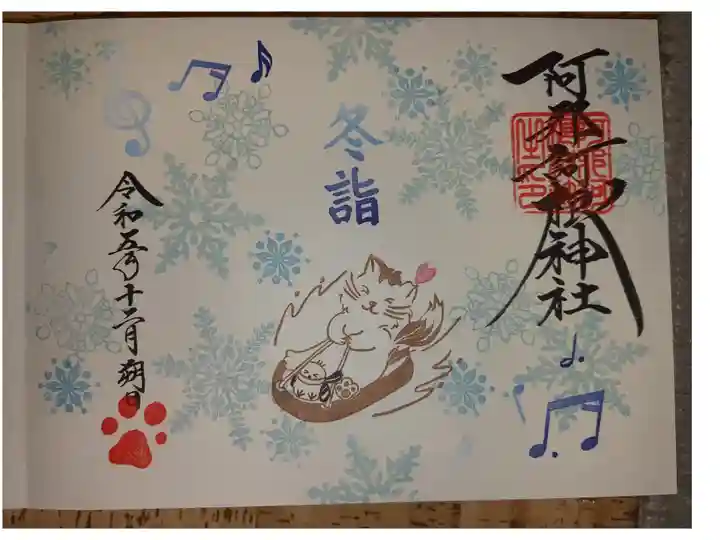 阿邪訶根神社
冬詣
令和五年十二月朔日